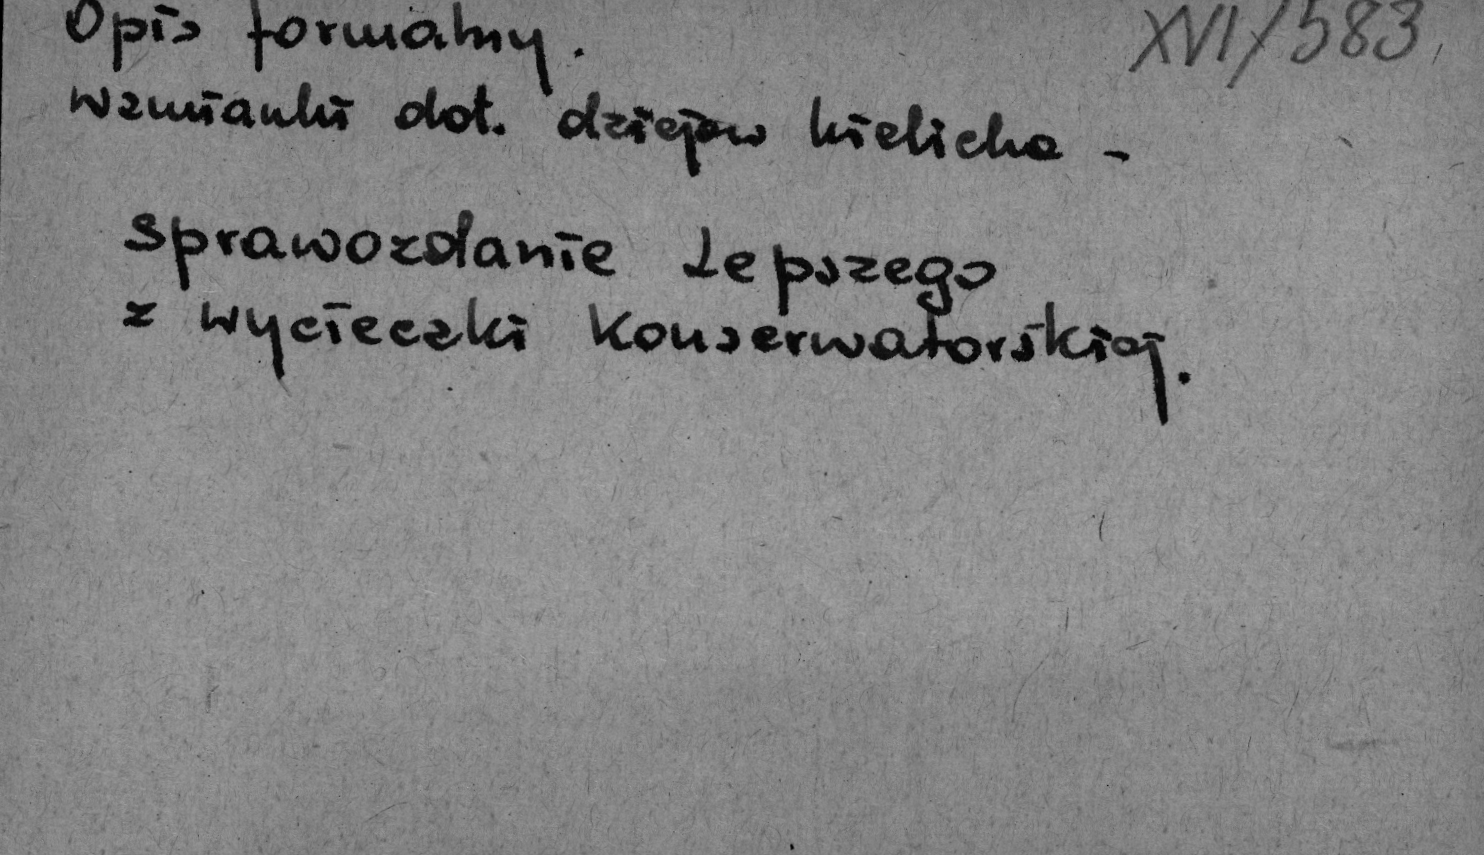 Opis formalny. XVI/583,
Wzmianki dot. dziejów kielicha -
Sprawozdanie Lepszego
z wycieczki Konserwatorskiej.